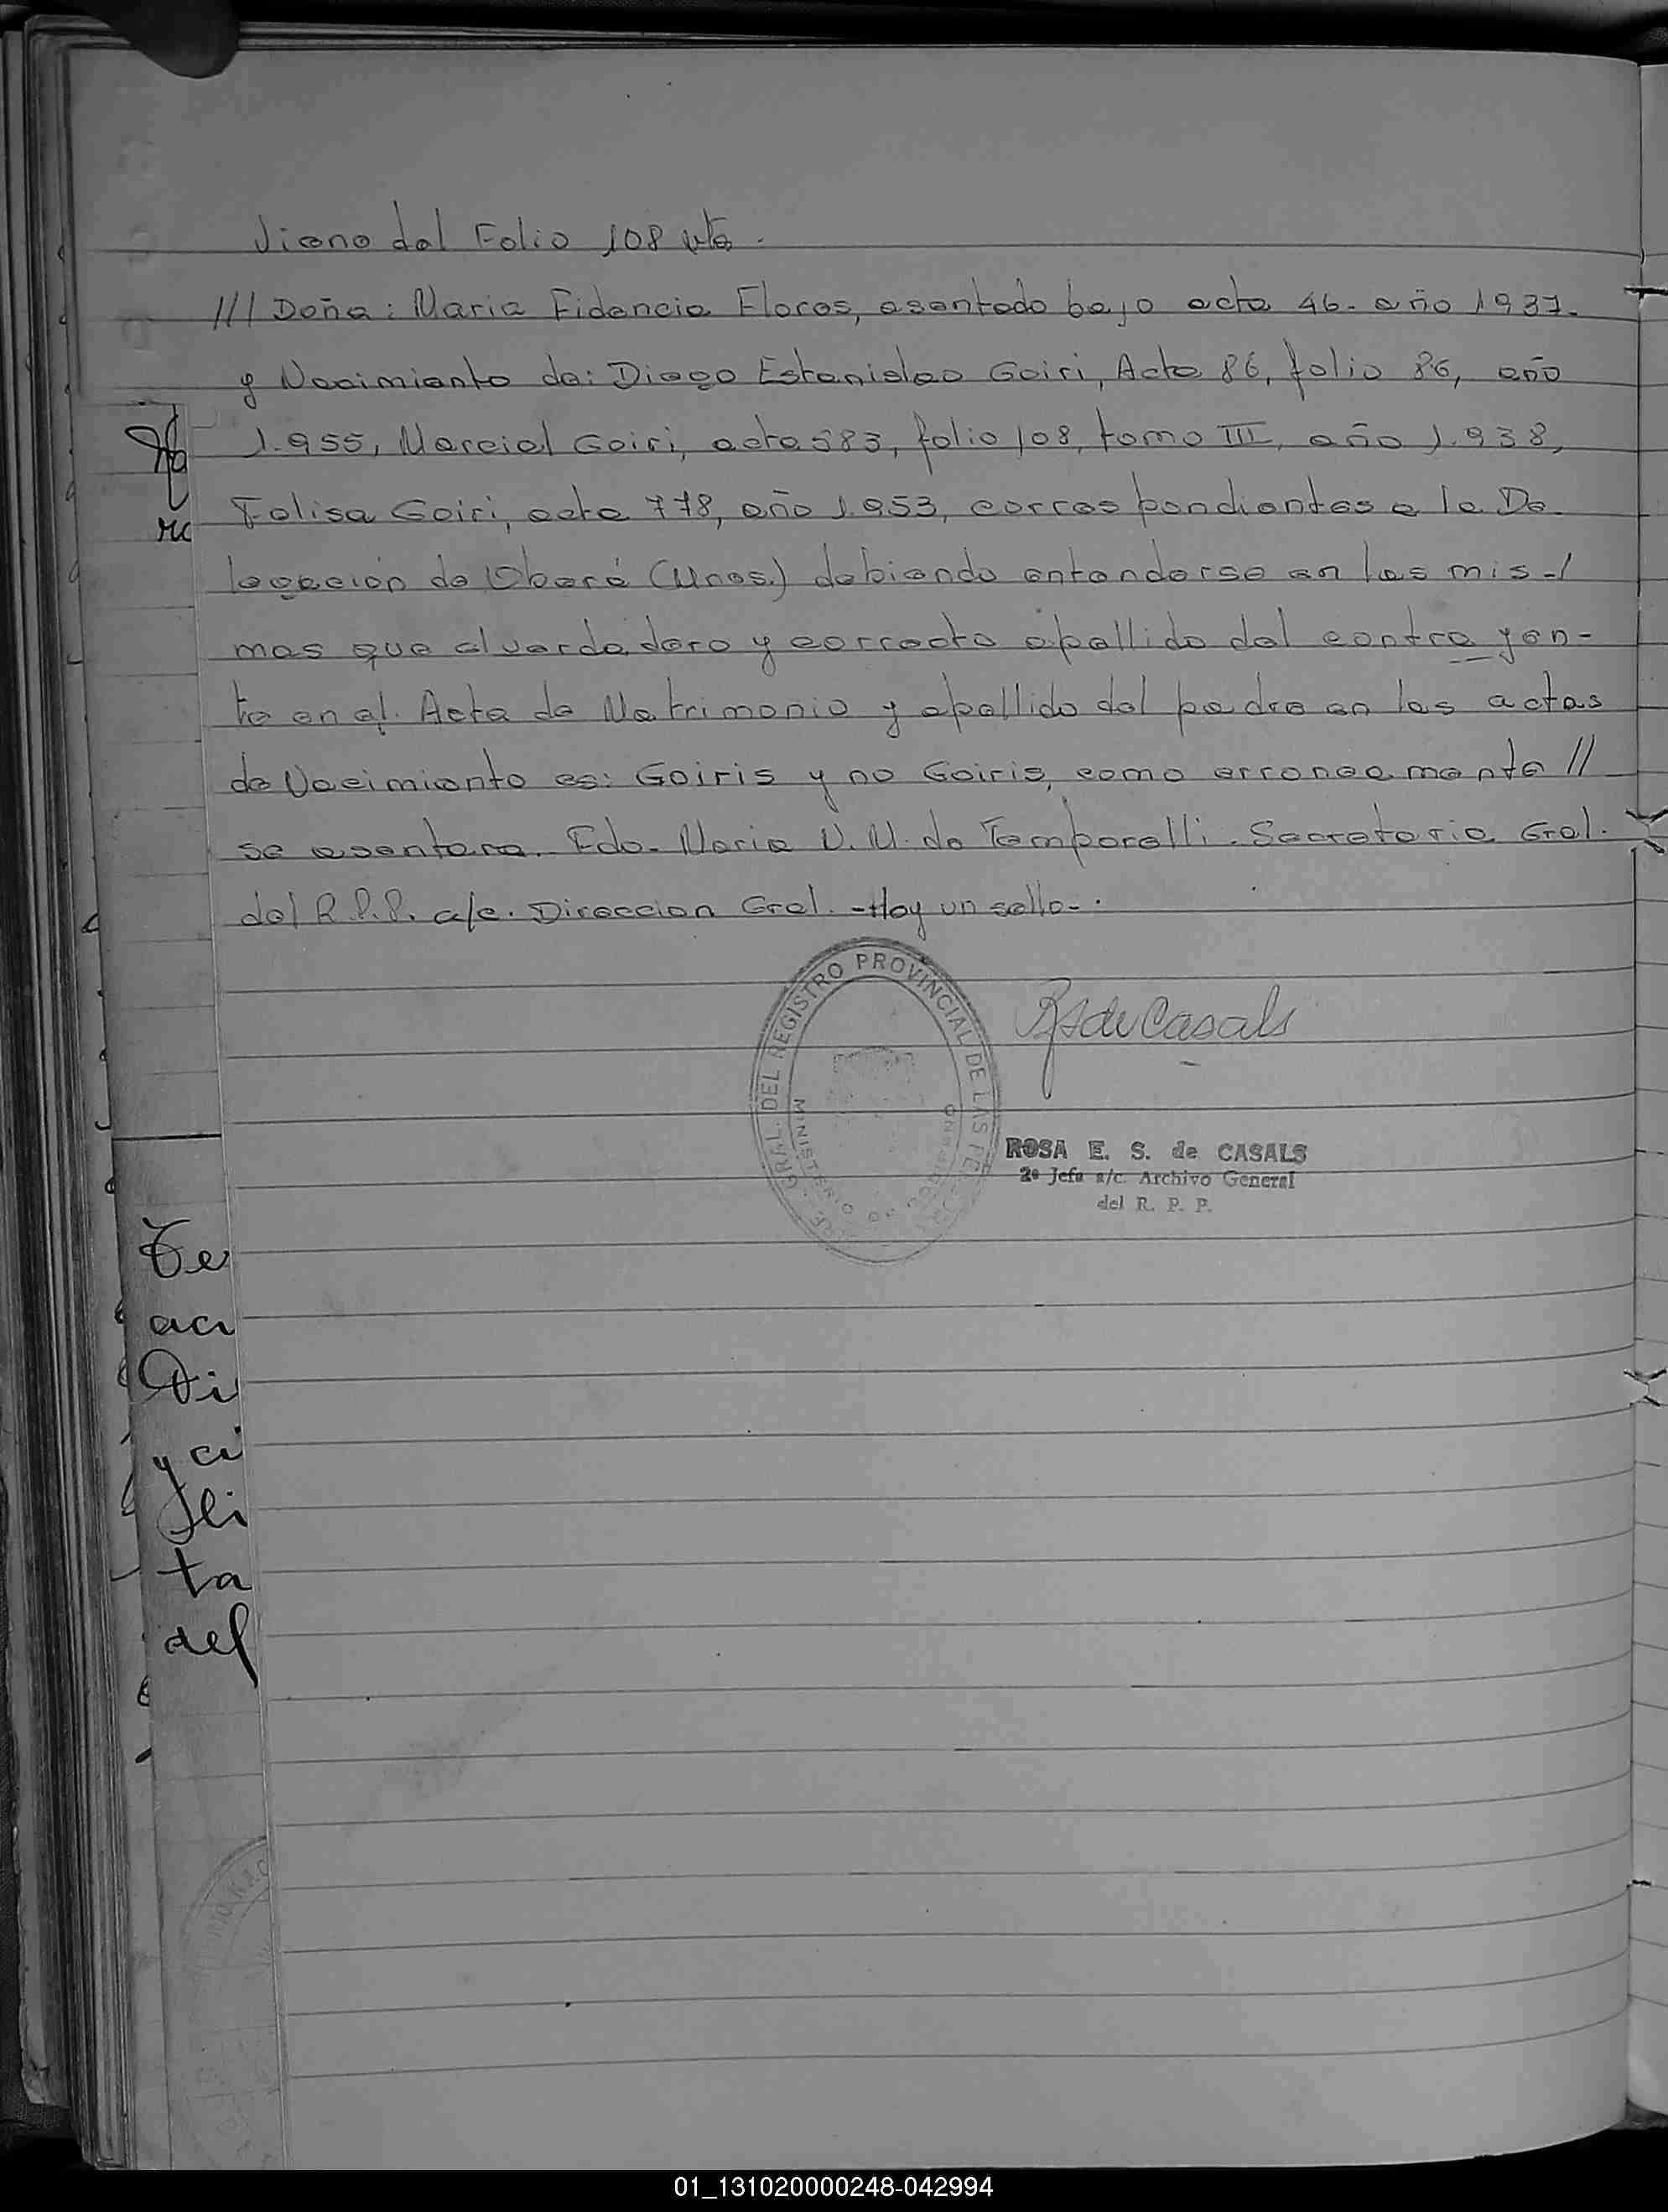 Viene del Folio 108 vto.
/// Doña: Maria Fidencia Flores, asentado bajo acta 46- año 1937-
y Nacimiento de: Diego Estanislao Goiri, Acta 86, folio 86, año
1.955, Marcial Goiri, acta 583, folio 108, tomo III, año 1.938,
Felisa Goiri, acta 778, año 1.953, correspondientes a la De-
legación de Oberá (Mnes.) debiendo entenderse en las mis-/
mas que el verdadero y correcto apellido del contrayen-
te en el Acta de Matrimonio y apellido del padre en las actas
de Nacimiento es: Goiris y no Goiris, como erroneamente //
se asentara. Fdo- Maria N. M. de Temporelli. Secretaria Gral.
del R.P.P. a/c. Direccion Gral. -Hay un sello-.
GRAL. DEL REGISTRO PROVINCIAL DE LAS PE
MINISTERIO DE GOBIERNO
de Casals
ROSA E. S. de CASALS
2º Jefa a/c. Archivo General
del R. P. P.
re
Te
acı
Di
y ci
Jli
ta
del
01_131020000248-042994